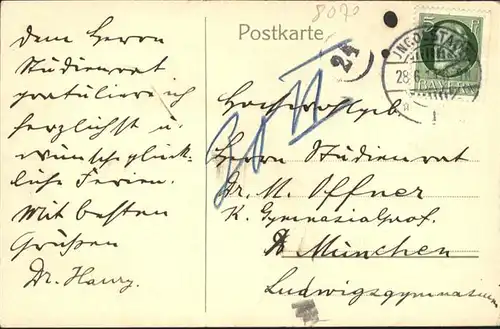 8070
Postkarte
INGOLSTADT
28. 6.
BAYERN
24
Dem Herrn
Studienrat
gratuliere ich
herzlichst u.
wünsche glück-
liche Ferien.
Mit besten
Grüßen
Dr.
Hochwohlgeb.
Herrn Studienrat
Dr. M. Offner
K. Gymnasialprof.
München
Ludwigsgymnasium